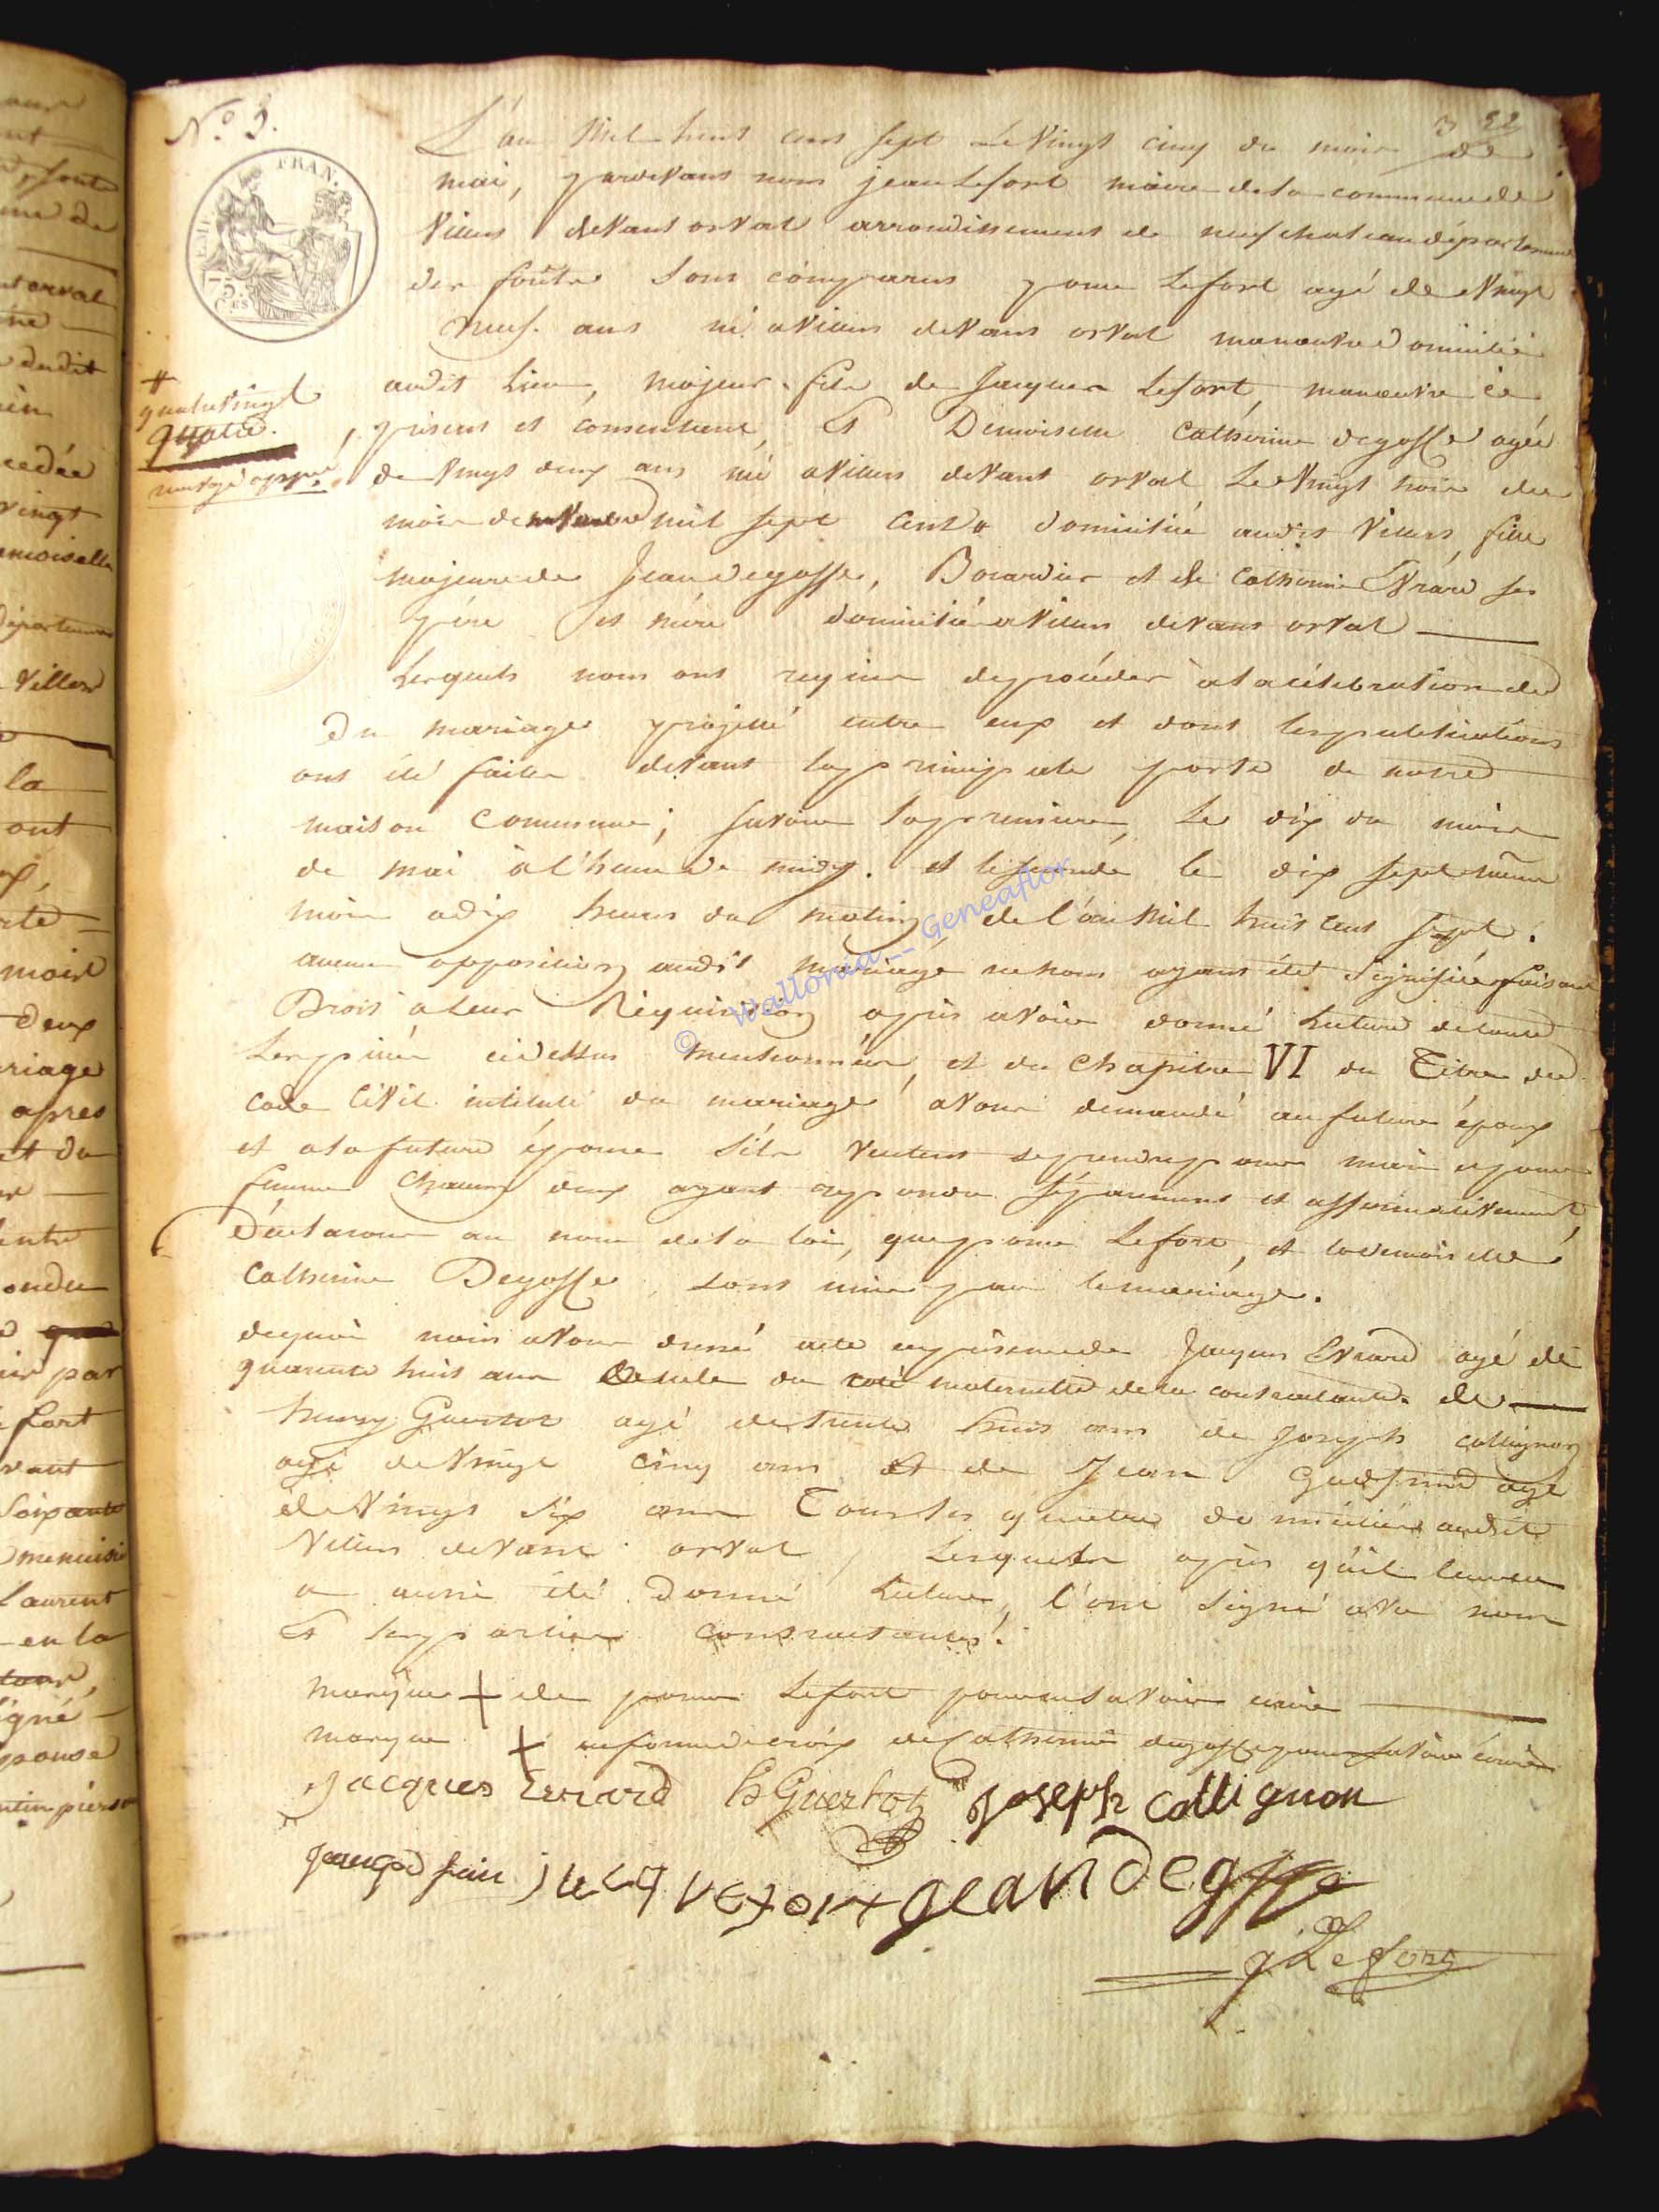 N.o 9.
3 22
EMP. FRAN.
75. C.es
L'an mil huit cent sept le vingt cinq du mois de
mai, pardevant nous jean Lefort maire de la commune de
villers devant orval arrondissement de neufchateau département
des forêts sont comparus pierre Lefort agé de vingt
neuf ans né a villers devant orval manoeuvre domicilié
audit lieu, majeur, fils de Jacques Lefort, manoeuvre ici
présent et consentant, et Demoiselle Catherine degosse agée
de vingt deux ans né a villers devant orval le vingt trois du
mois de mil sept cent # domiciliée audit villers, fille
# quatrevingt
quatre.
renvoye appr.
majeure de Jean degosse, et de Catherine Evrard ses
père et mère domiciliés a villers devant orval
Lesquels nous ont requis de procéder à la célébration de
du mariage projetté entre eux et dont les publications
ont été faites devant la principale porte de notre
maison commune; savoir la premiere, le dix du mois
de mai à l'heure de midy. et le seconde le dix sept même
mois a dix heures du matin de l'an mil huit cent sept.
aucune opposition audit mariage ne nous ayant été signifiée, faisant
Droit a leur Réquisition après avoir donné lecture de toutes
les pièces cidessus mentionnées, et du chapitre VI du Titre du
code civil intitulé du mariage, avons demandé au futur époux
et a la future épouse s'ils veulent se prendre pour mari et pour
femme chacun deux ayant repondu séparement et affirmativement,
déclarons au nom de la loi, que pierre Lefort, et la demoiselle
Catherine Degosse, sont unis par le mariage.
dequoi nous avons dressé acte en présence de Jacques Evrard agé de
quarante huit ans oncle du coté maternelle de la contractante. de
henry Guertot agé de trente huit ans de Joseph collignon
agé de vingt cinq ans et de Jean agé
de vingt six ans Tous les quatre domiciliés audit
villers devant orval, Lesquels après qu'il leur en
a aussi été donné lecture, l'ont signé avec nous
et les parties contractantes.
marque + de pierre Lefort pour ne savoir écrire
marque + en forme de croix de Catherine degosse pour ne savoir écrire
Jacques Evrard h Guertot Joseph collignon
jean degosse
J Lefort
© Wallonia -- Geneaflor